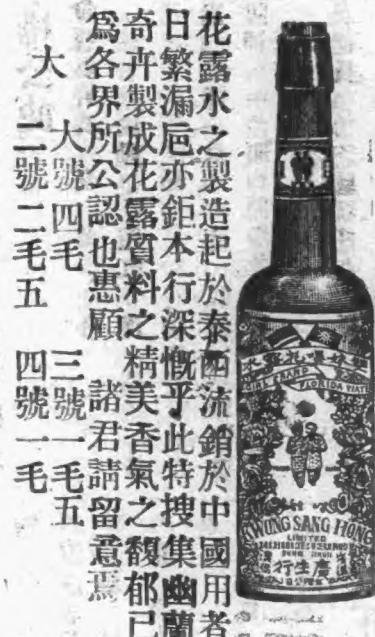 花露水之製造起於泰西流銷於中國用者
日繁漏巵亦鉅本行深慨乎此特搜集幽蘭
奇卉製成花露質料之精美香氣之馥郁已
爲各界所公認也惠顧 諸君請留意焉
大 大號四毛 三號一毛五
二號二毛五 四號一毛
雙妹嚜花露水
GIRL BRAND FLORIDA WATER
KWONG SANG HONG
LIMITED
HONG KONG
廣生行